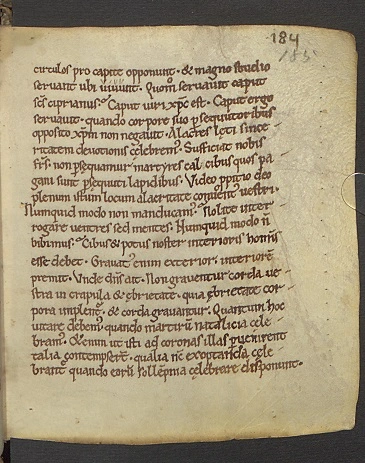 184
185
circulos pro capite opponunt. & magno studio
servant ubi vivunt. Quom̄ servavit caput
scs̄ ciprianus? Caput viri xp̄c est. Caput ergo
servavit. quando corpore suo p̱sequutoribus
opposito xp̄m non negavit. Alacres lęti since
ritatem devotionis celebrem'. Sufficiat nobis
frs̄. non p̱sequamur martyres calicibus quos pa
gani sunt p̱sequuti lapidibus. Video p̱pitio deo
plenum istum locum alacritate convent' vestri.
Numquid modo non manducam'? Nolite inter
rogare ventres sed mentes. Numquid modo n̄
bibimus? Cibus & potus noster interioris hominis
esse debet. Gravat' enim exterior. interiorē
premit. Unde dn̄s ait. Non graventur corda ve
stra in crapula & ębrietate. quia ębrietate cor
pora implent'. & corda gravantur. Quantum hoc
vitare debem'. quando martirū natalicia cele
bram'. &enim ut isti ad coronas illas pvenirent
talia contempser̄. qualia nc̄ exoptanda cele
brant' quando eorū sollēpnia celebrare disponunt.